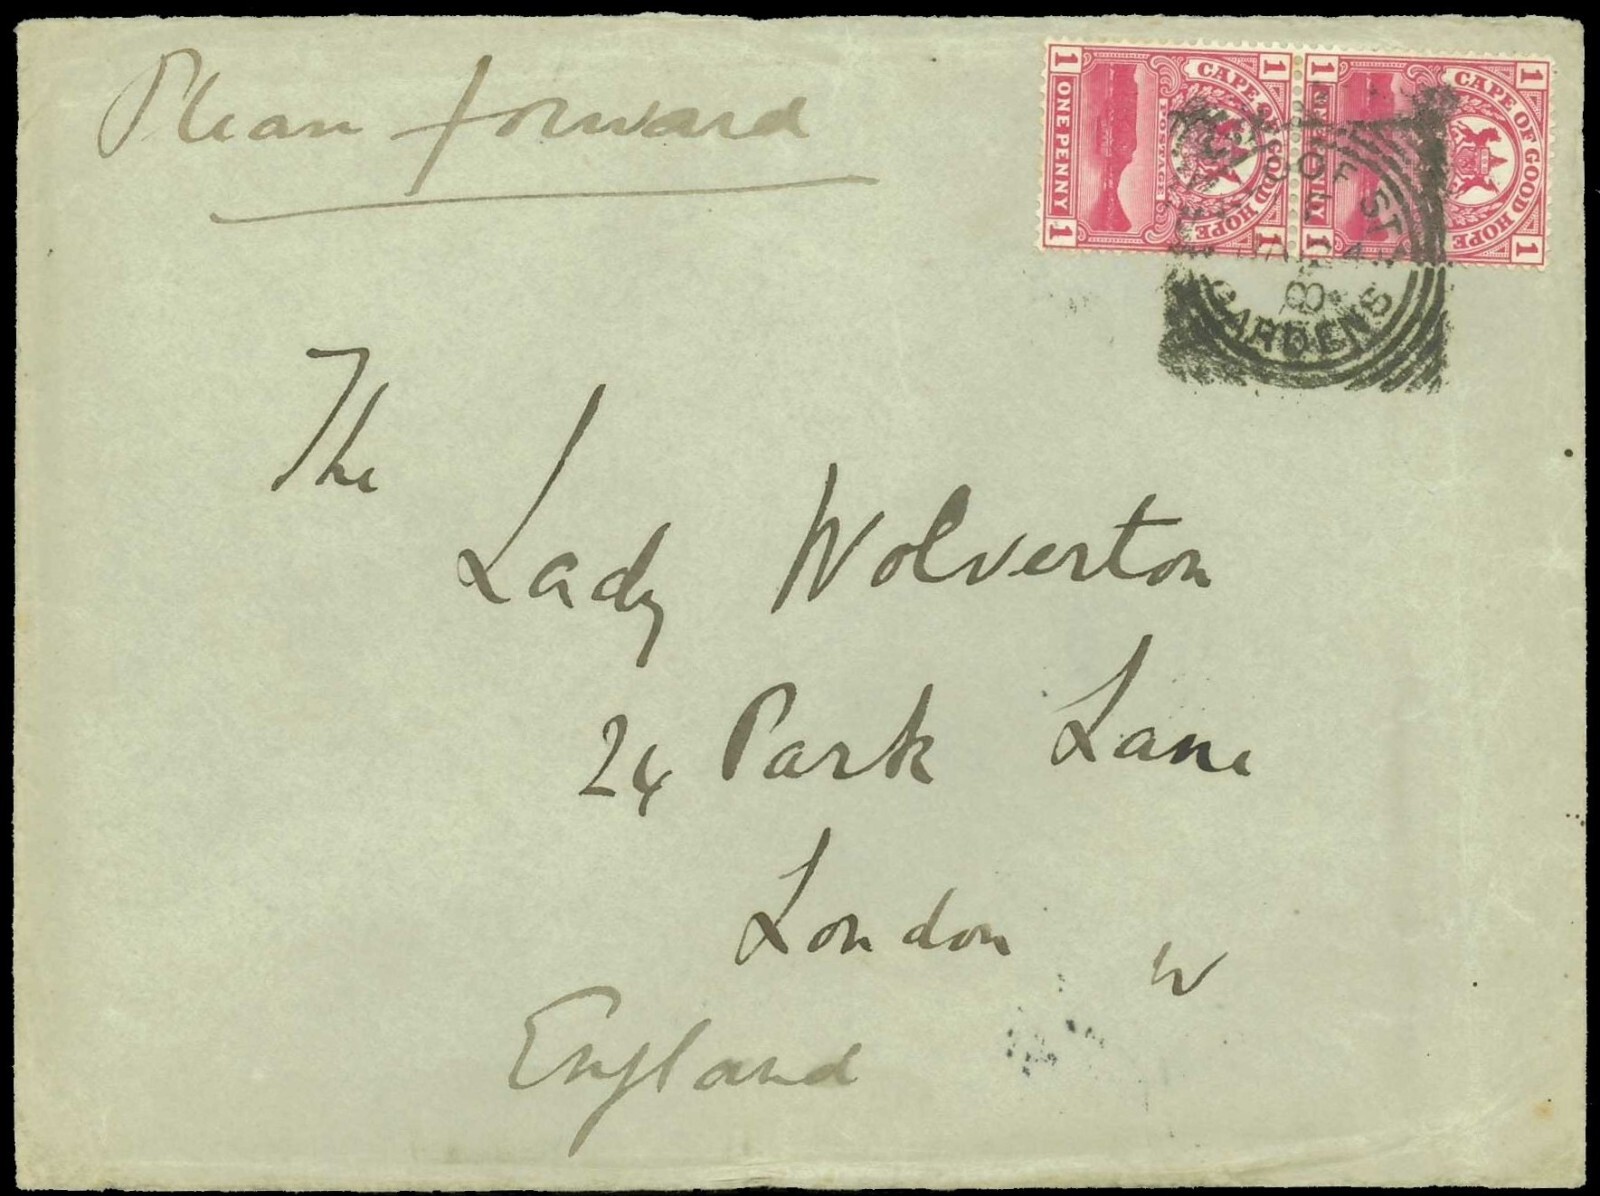 Please forward
1 CAPE OF GOOD HOPE 1
POSTAGE
1 ONE PENNY 1
1 CAPE OF GOOD HOPE 1
1
KLOOF ST
GARDENS
The
Lady Wolverton
24 Park Lane
London W
England